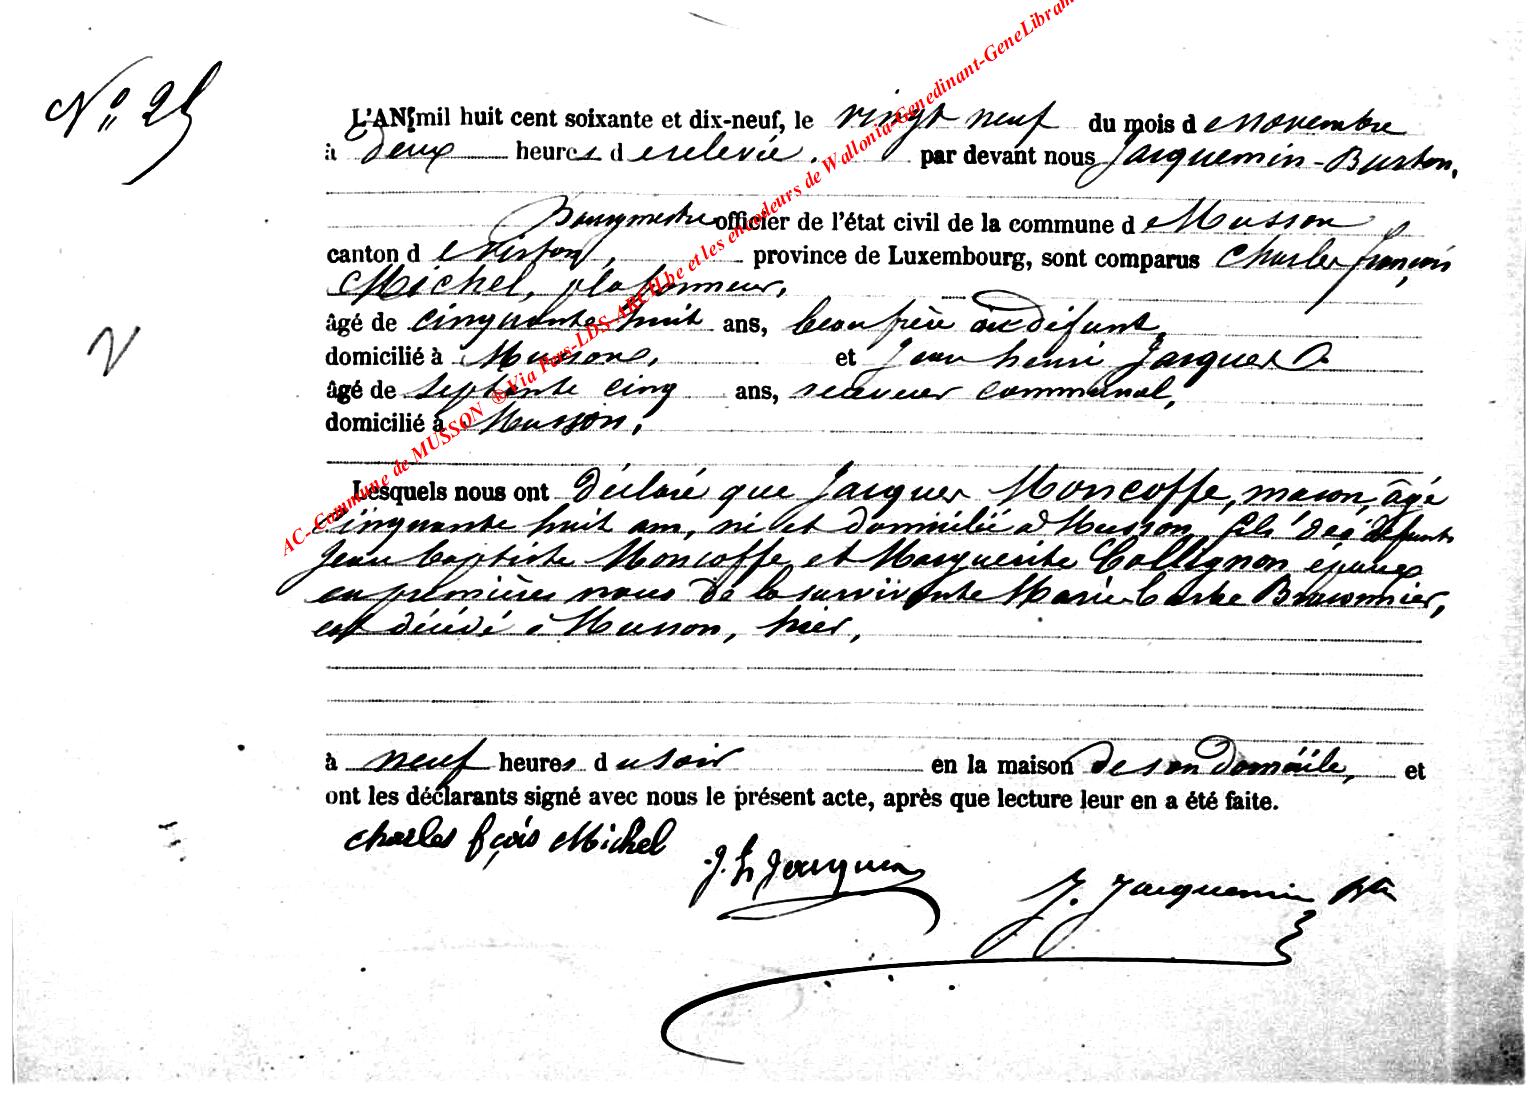 N° 25
L'AN mil huit cent soixante et dix-neuf, le vingt neuf du mois de novembre
à deux heures de relevée. par devant nous Jacquemin-Burton,
Bourgmestre officier de l'état civil de la commune de Musson
canton de Virton, province de Luxembourg, sont comparus Charles françois
Michel, plafonneur,
âgé de cinquante huit ans, beau frère du défunt,
domicilié à Musson, et Jean henri Jacques
âgé de septante cinq ans, receveur communal,
domicilié à Musson,
Lesquels nous ont déclaré que Jacques Moncoffe, macon, âgé
cinquante huit ans, né et domicilié à Musson, fils des défunts
Jean Baptiste Moncoffe et Marguerite Collignon époux
en premières noces de la survivante Marie Barbe
est décédé à Musson, hier,
à neuf heures du soir en la maison de son domicile, et
ont les déclarants signé avec nous le présent acte, après que lecture leur en a été faite.
Charles fçois Michel
J. h Jacques
J. Jacquemin
AC-Commune de MUSSON ®Via Pers-LDS-ARCH.be et les encodeurs de Wallonia-Genedinant-GeneLibram